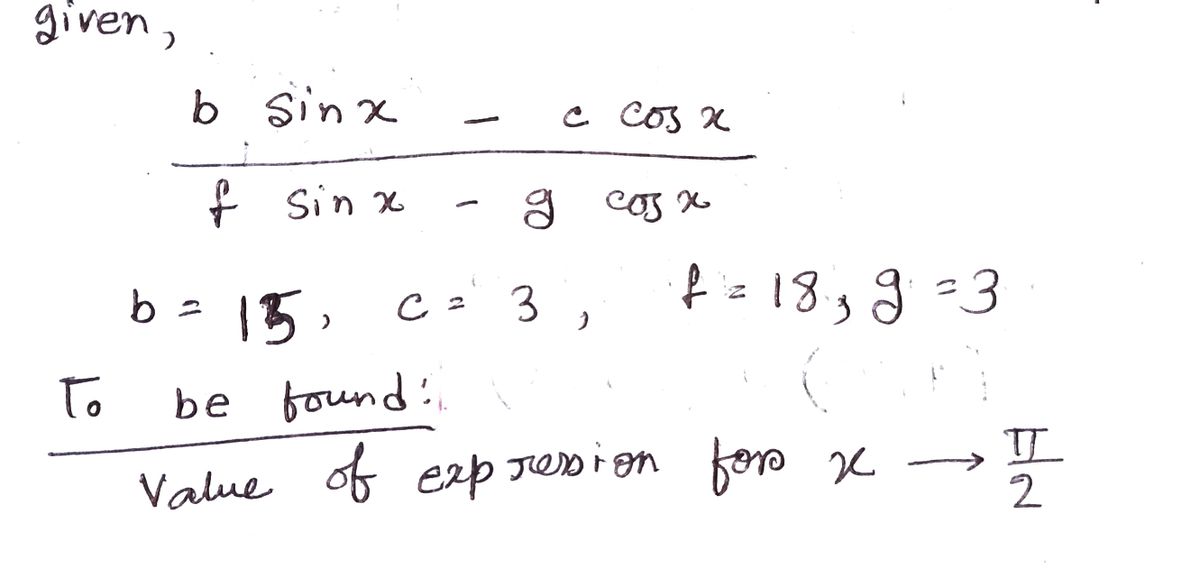 given,
b sin x - c cos x
f sin x - g cos x
b = 15, c = 3, f = 18, g = 3
To be found:
Value of expression for x → π/2